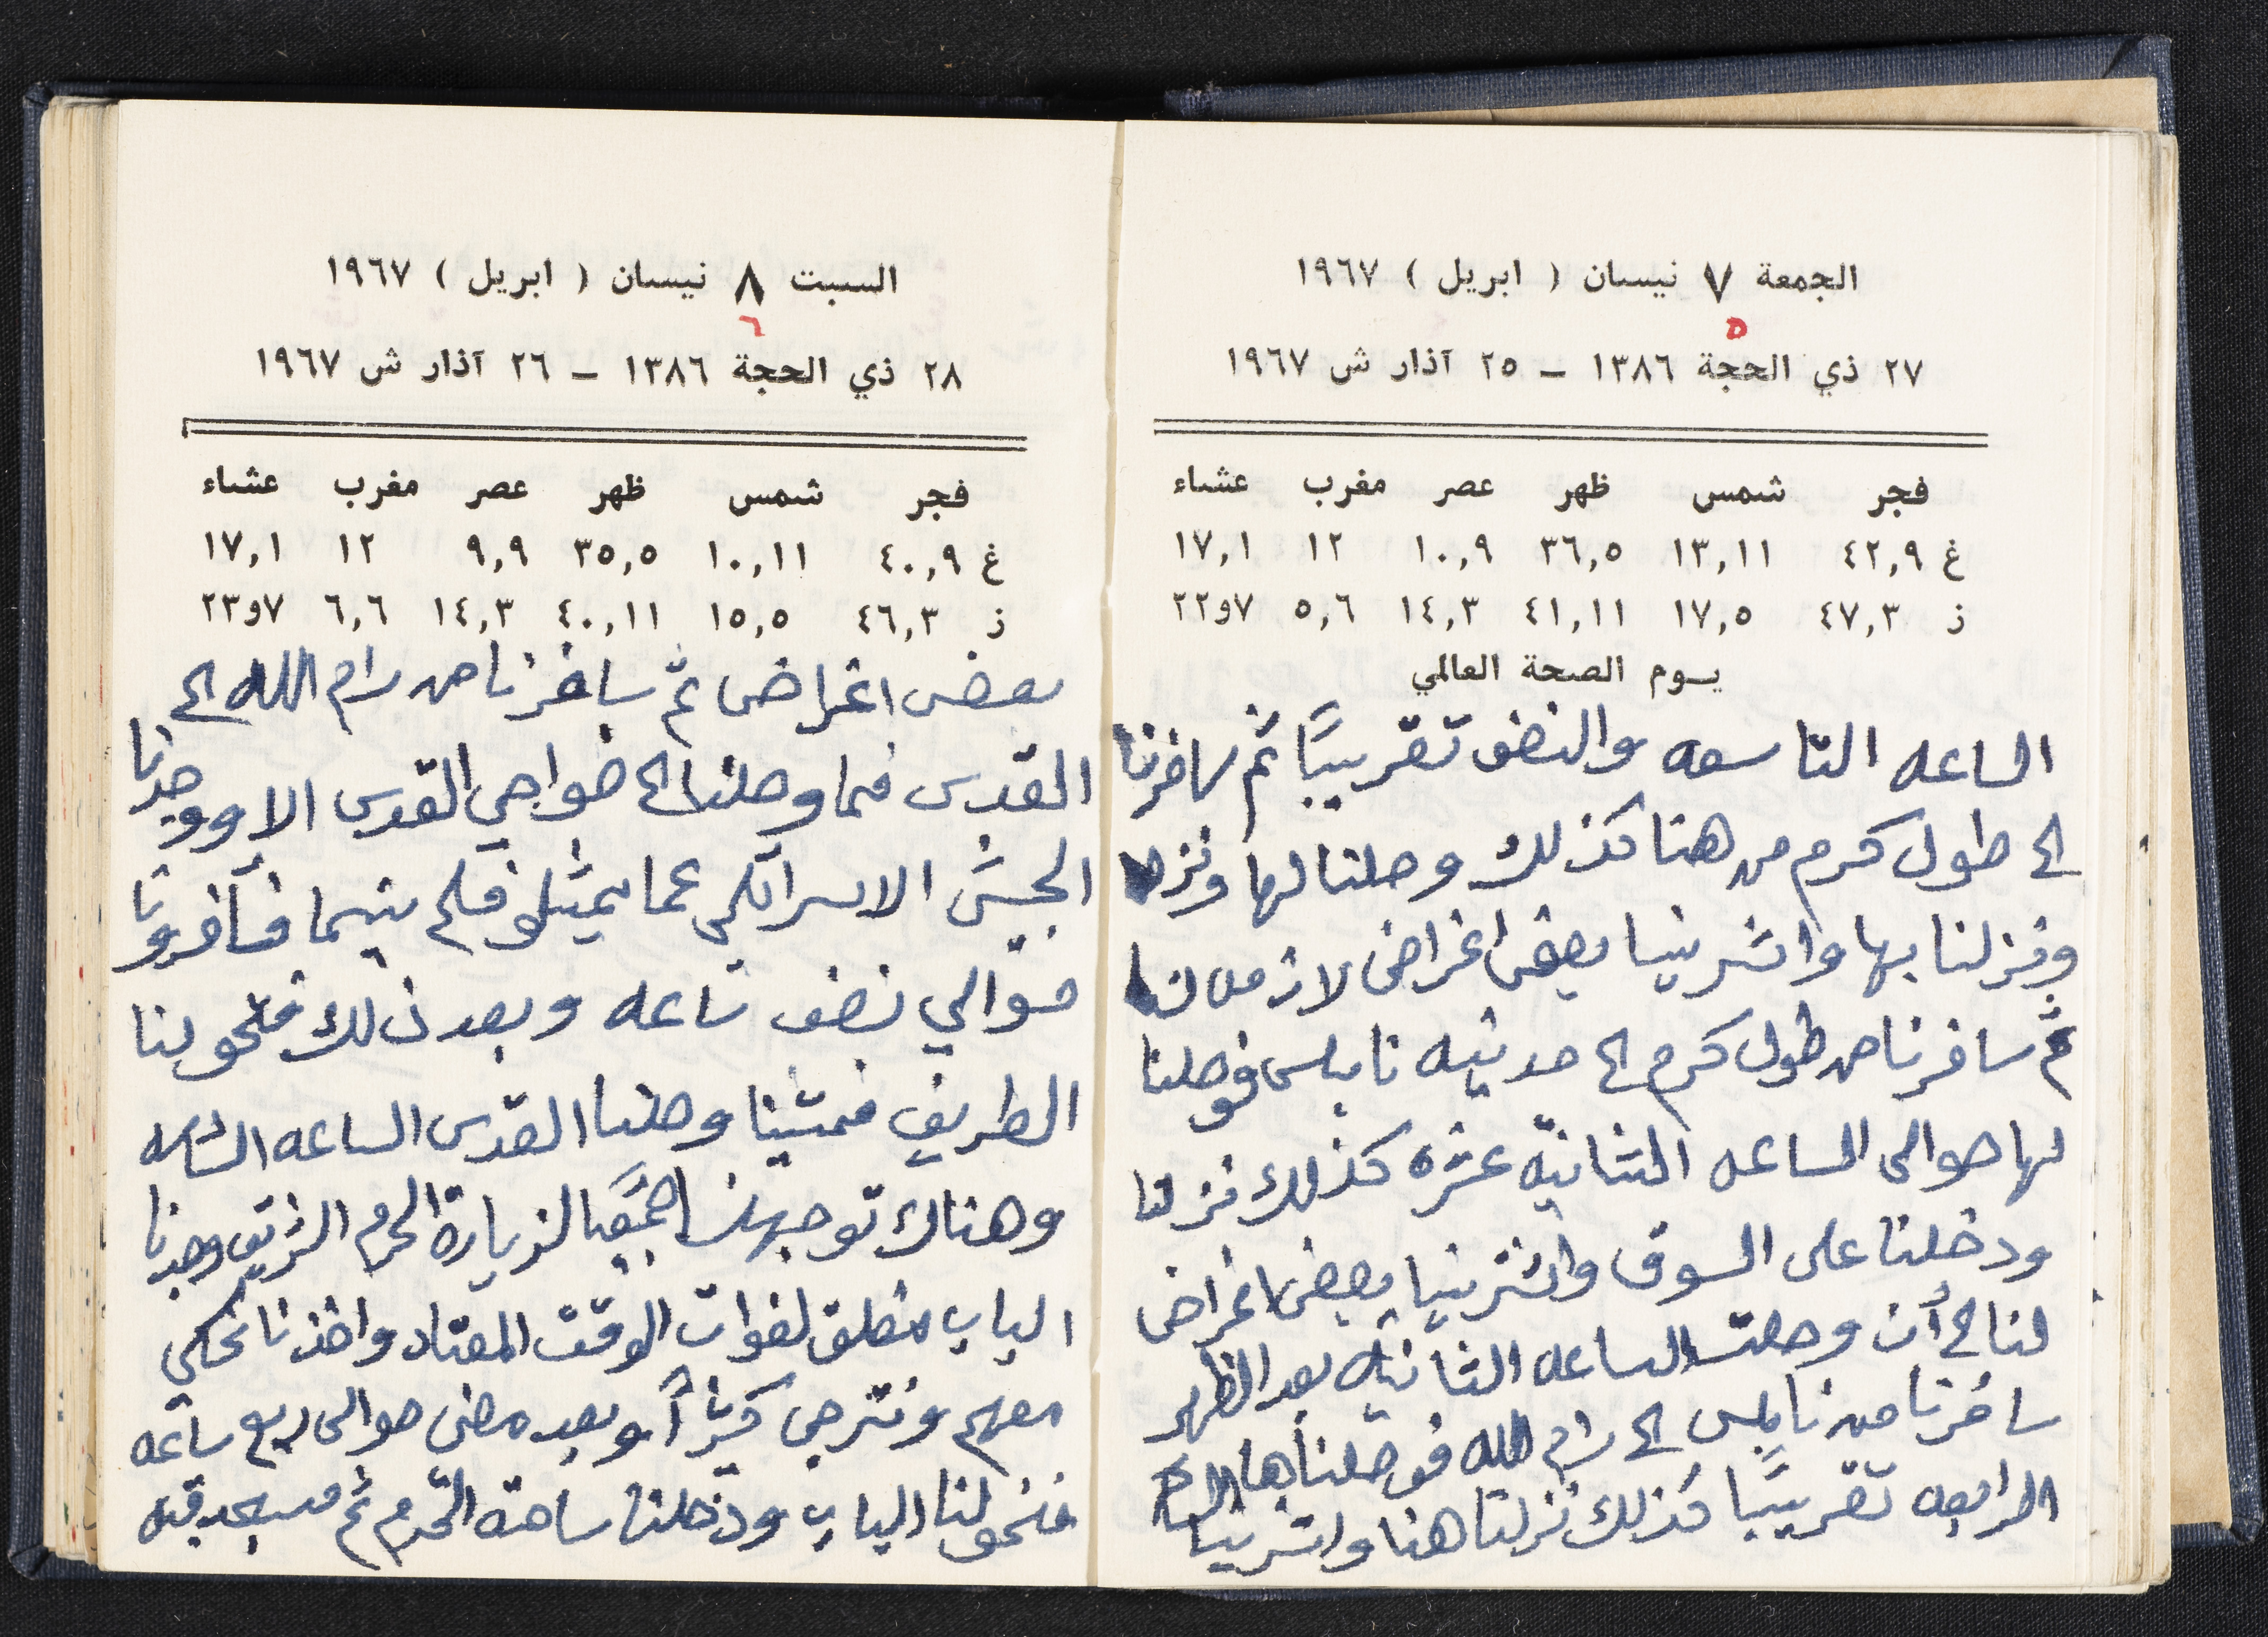 الجمعة ٧ نيسان ( ابريل ) ١٩٦٧
٥
٢٧ ذي الحجة ١٣٨٦ – ٢٥ آذار ش ١٩٦٧
فجر شمس ظهر عصر مغرب عشاء
غ ٤٢,٩ ١٣,١١ ٣٦,٥ ١٠,٩ ١٢ ١٧,١
ز ٤٧,٣ ١٧,٥ ٤١,١١ ١٤,٣ ٥,٦ ٧و٢٢
يـوم الصحة العالمي
الساعه التاسعه والنصف تقريبًا ثم سافرنا
الى طول كرم من هنا كذلك وصلنا لها
ونزلنا بها واشرينا بعض اغراض لازمه لنا
ثم سافرنا من طول كرم الى مدنيه نابلس فوصلنا
لها حوالي الساعه الثانيه عشره كذلك نزلنا
ودخلنا على السوق واشترينيا بعض اغراض
لنا الى أن وصلت الساعه الثانيه بعد الظهر
سافرنا من نابلس الى رام الله فوصلناها
الرابعه تقريبًا كذلك نزلنا هنا واشرينا
السبت ٨ نيسان ( ابريل ) ١٩٦٧
٦
٢٨ ذي الحجة ١٣٨٦ – ٢٦ آذار ش ١٩٦٧
فجر شمس ظهر عصر مغرب عشاء
غ ٤٠,٩ ١٠,١١ ٣٥,٥ ٩,٩ ١٢ ١٧,١
ز ٤٦,٣ ١٥,٥ ٤٠,١١ ١٤,٣ ٦,٦ ٧و٢٣
بعض اغراض ثم سافرنا من رام الله الى
القدس فما وصلنا الى ضواحي القدس الا ووجدنا
الجيش الاسرائلي عما يمثلو فلم سنيما فأخرونا
حوالي نصف ساعه وبعد ذلك فتحو لنا
الطريق فمشينا وصلنا القدس الساعه
وهناك توجهنا جمعيًا لزيارة الحرم الشريف وجدنا
الباب مغلق لفوات الوقت المعتاد واخذنا نحكي
معهم ونترجى كثيرًا وبعد مضي حوالى ربع ساعه
فتحو لنا الباب ودخلنا ساحة الحرم ثم مسجد قبه